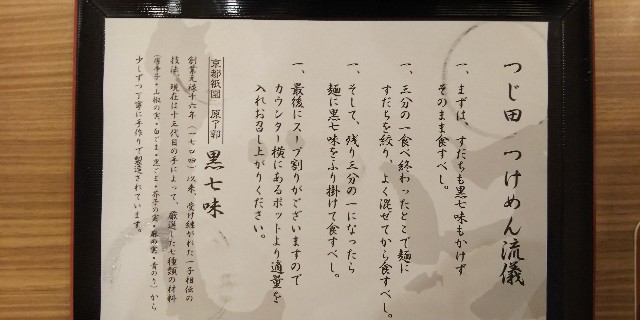 つじ田 つけめん流儀
一、まずは、すだちも黒七味もかけず
そのまま食すべし。
一、三分の一食べ終わったところで麺に
すだちを絞り、よく混ぜてから食すべし。
一、そして、残り三分の一になったら
麺に黒七味をふり掛けて食すべし。
一、最後にスープ割りがございますので
カウンター横にあるポットより適量を
入れお召し上がりください。
京都祇園 原了郭 黒七味
創業元禄十六年(一七〇四)以来、受け継がれた一子相伝の
技法。現在は十三代目の手によって、厳選した七種類の材料
(唐辛子・山椒の実・白ごま・黒ごま・芥子の実・麻の実・青のり)から
少しずつ丁寧に手作りで製造されています。